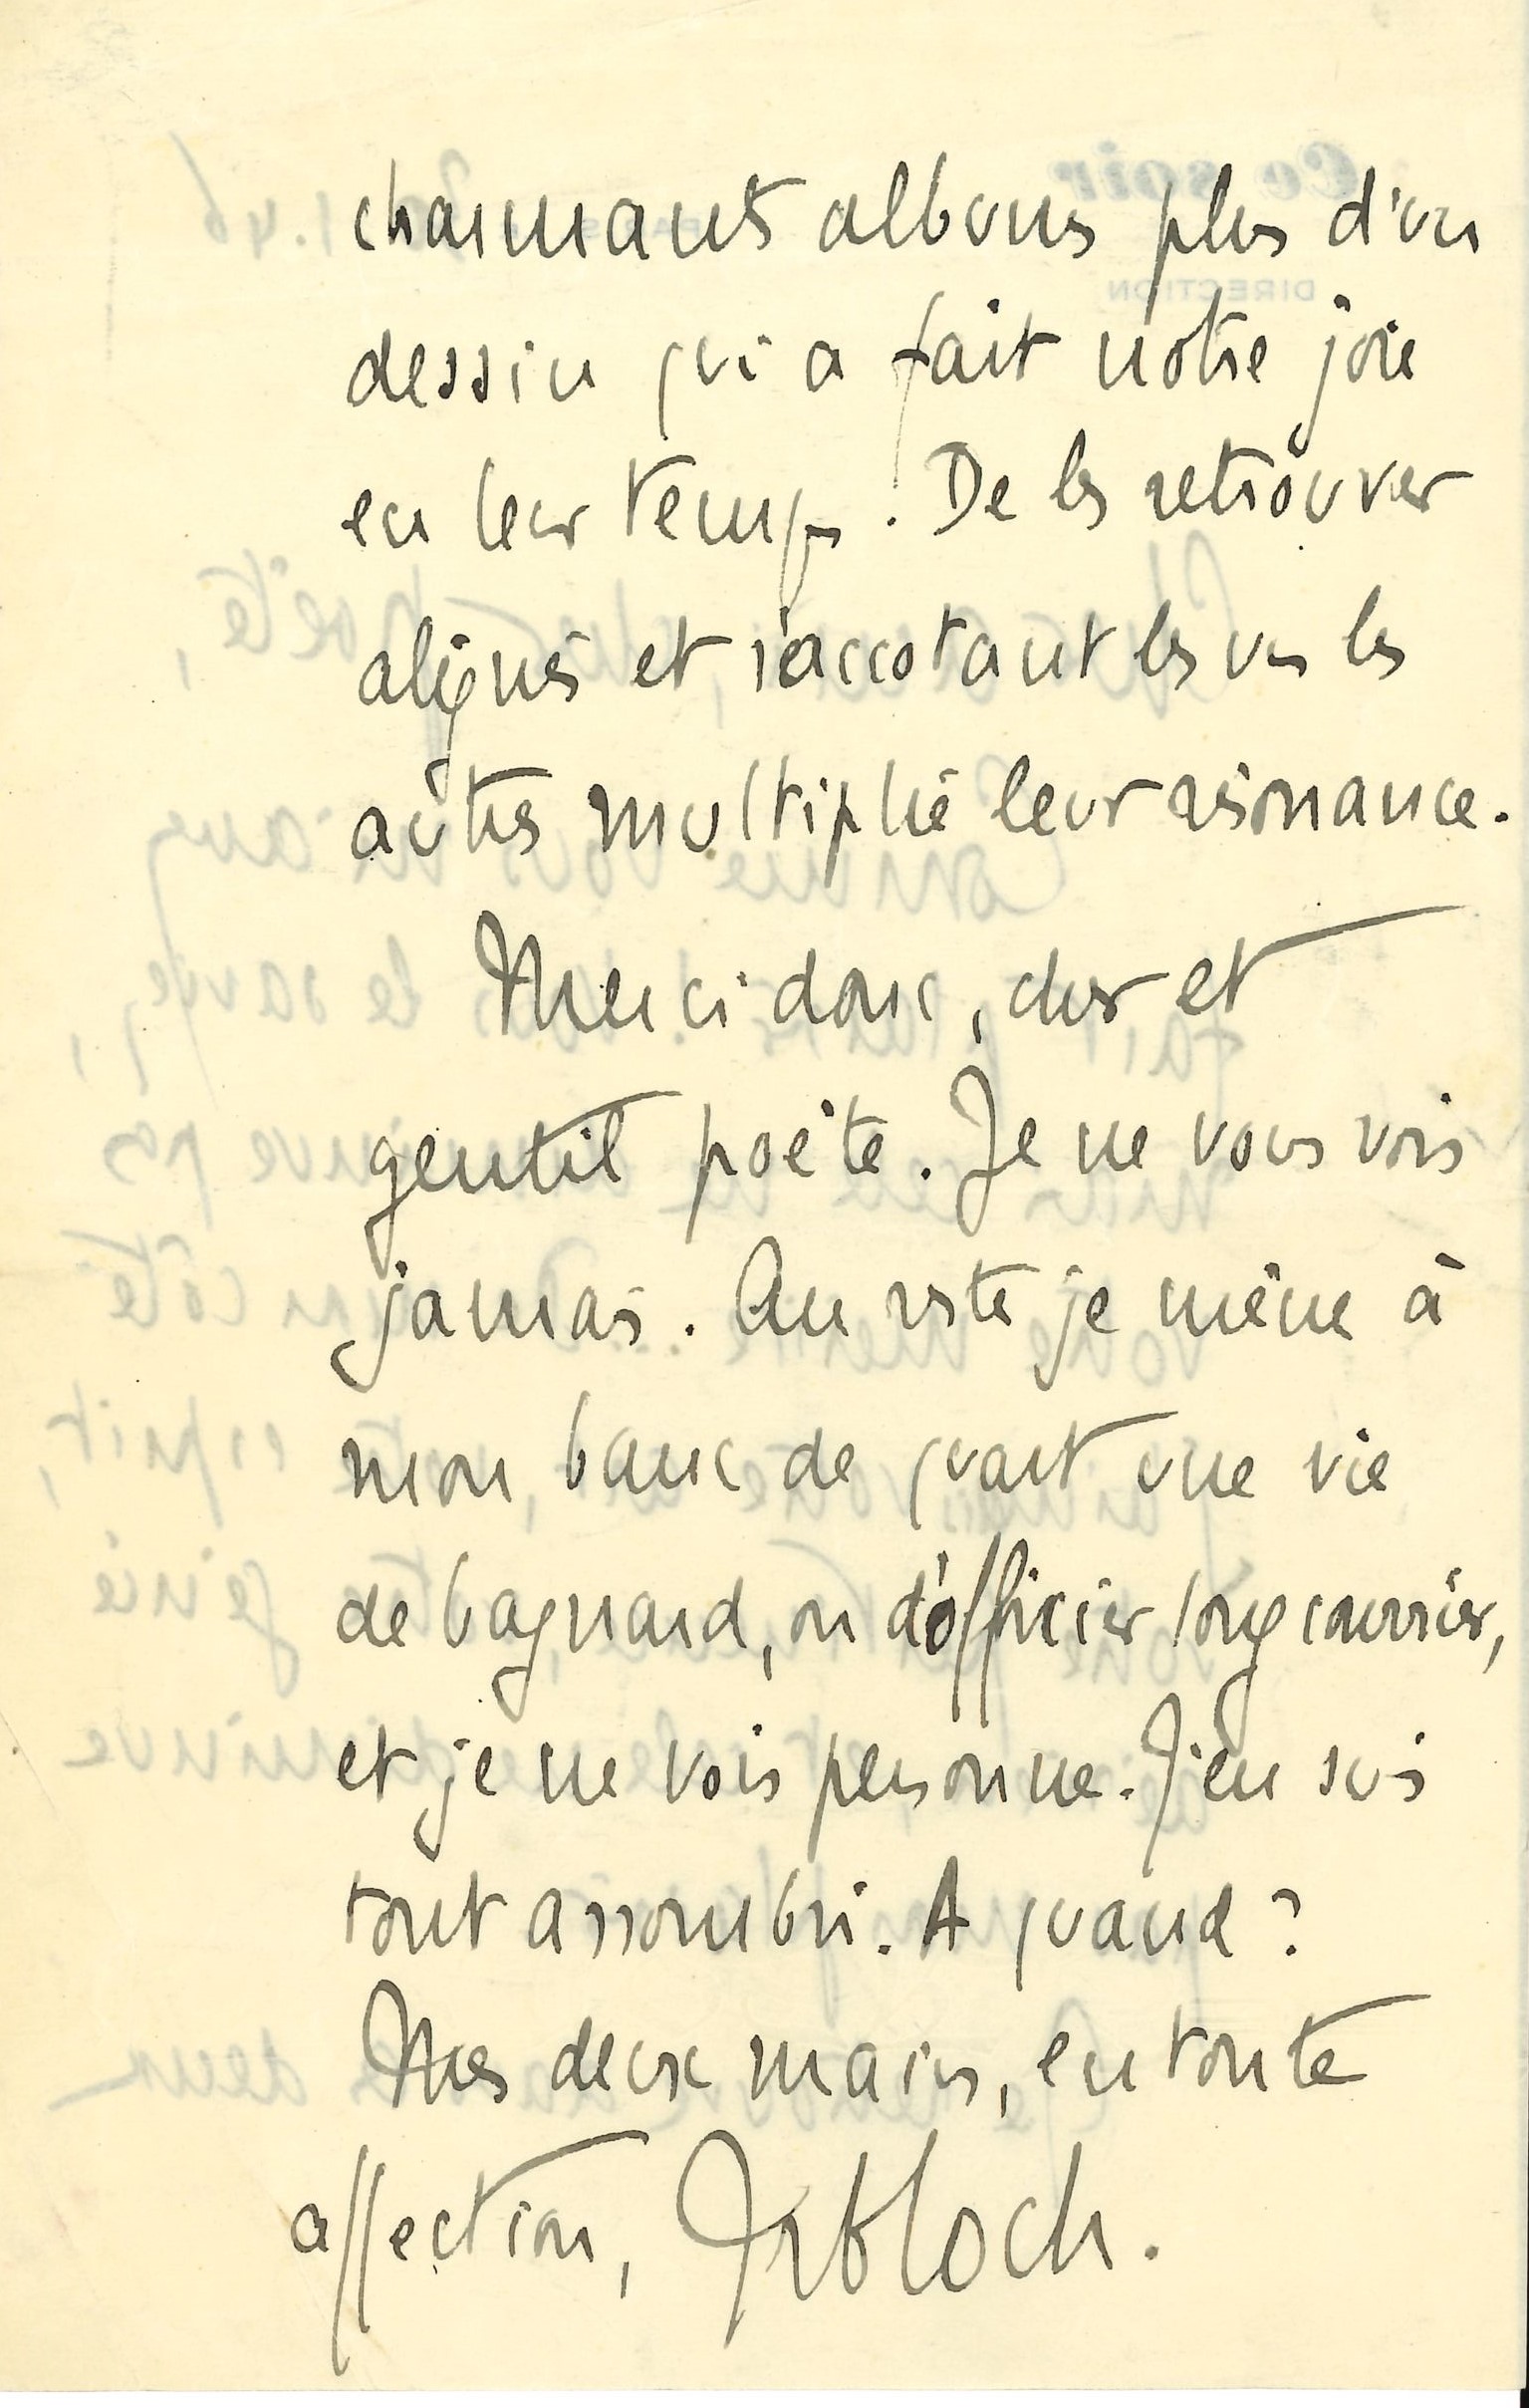 charmants albums plus d'un
dessin qui a fait notre joie
en leur temps. De les retrouver
alignés et s'accotant les uns les
autres multiplie leur résonnance.
Merci donc, cher et
gentil poète. Je ne vous vois
jamais. Au reste je mène à
mon banc de quart une vie
de bagnard, ou d'officier long courrier,
et je ne vois personne. J'en suis
tout assombri. A quand ?
Mes deux mains, en toute
affection, JRBloch.
Ce soir
DIRECTION